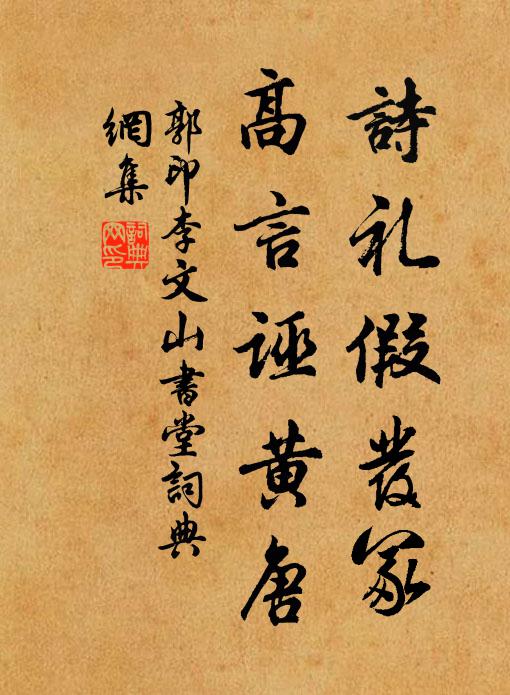 詩礼假發冢
高言誣黄唐
郭印李文山書堂詞典
網集
詞典網印